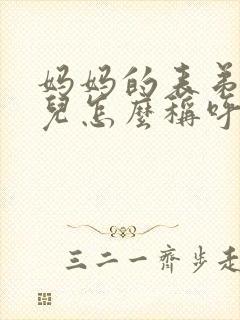 妈妈的表弟
兒怎麽稱呼
三二一齊步走